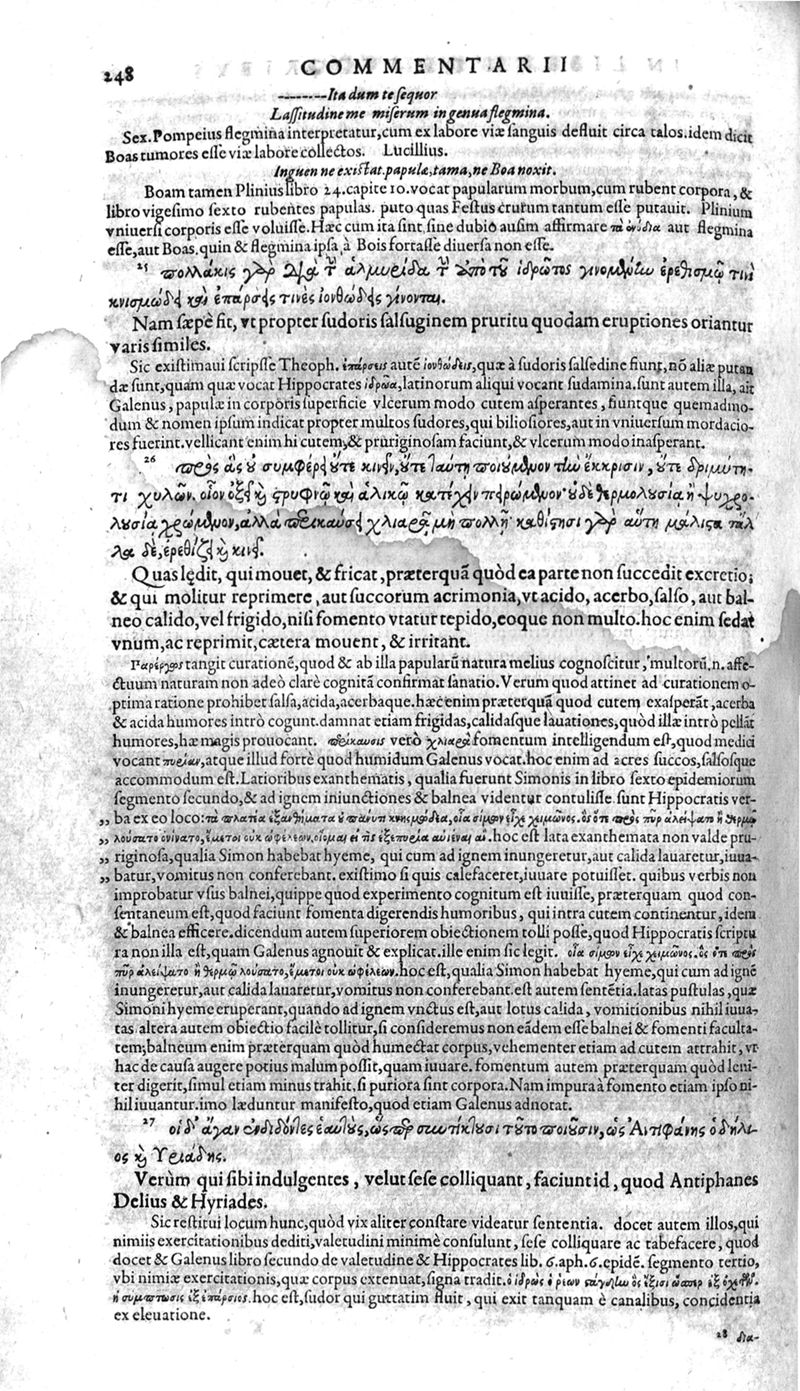 248
COMMENTARII
--------Ita dum te sequor
Lassitudine me miserum in genua flegmina.
Sex. Pompeius flegmina interpretatur, cum ex labore viæ sanguis defluit circa talos. idem dicit
Boas tumores esse viæ labore collectos. Lucillius.
Inguen ne existat, papulæ, tama, ne Boa noxit.
Boam tamen Plinius libro 24. capite 10. vocat papularum morbum, cum rubent corpora, &
libro vigesimo sexto rubentes papulas. puto quas Festus crurum tantum esse putauit. Plinium
vniuersi corporis esse voluisse. Hæc cum ita sint, sine dubio ausim affirmare aut flegmina
esse, aut Boas. quin & flegmina ipsa à Bois fortasse diuersa non esse.
25 πολλάκις γὰρ διὰ τ̀ ἁλμυρίδα τ̀ ἀπὸ τȣ͂ ἱδρῶτος γινομένην ἐρεθισμῷ τινὶ
κνισμώδει καὶ ἐπάρσεις τινὲς ἰονθώδεις γίνονται.
Nam sæpè fit, vt propter sudoris salsuginem pruritu quodam eruptiones oriantur
varis similes.
Sic existimaui scripsse Theoph. ἐπάρσεις autē ἰονθώδεις, quæ à sudoris salsedine fiunt, nō aliæ putan
dæ sunt, quam quæ vocat Hippocrates ἱδρῶα, latinorum aliqui vocant sudamina. sunt autem illa, ait
Galenus, papulæ in corporis superficie vlcerum modo cutem asperantes, fiuntque quemadmo-
dum & nomen ipsum indicat propter multos sudores, qui biliosiores, aut in vniuersum mordacio-
res fuerint. vellicant enim hi cutem, & pruriginosam faciunt, & vlcerum modo inasperant.
26 πρὸς ἃς ȣ̓ συμφέρει ȣ̓́τε κινεῖν, ȣ̓́τε ταύτῃ ποιȣ́μενον τὴν ἔκκρισιν, ȣ̓́τε δριμύτη-
τι χυλῶν. οἷον ὀξεῖ καὶ στρυφνῷ καὶ ἁλικῷ κατέχειν πειρώμενον· ȣ̓δὲ θερμολουσίᾳ ἢ ψυχρο-
λουσίᾳ χρώμενον, ἀλλὰ πυρικαύσει χλιαρᾷ μὴ πολλῇ· καθίστησι γὰρ αὕτη μάλιστα τἄλ
λα δὲ, ἐρεθίζει καὶ κινεῖ.
Quas lędit, qui mouet, & fricat, præterquā quòd ea parte non succedit excretio;
& qui molitur reprimere, aut succorum acrimonia, vt acido, acerbo, salso, aut bal-
neo calido, vel frigido, nisi fomento vtatur tepido, eoque non multo. hoc enim sedat
vnum, ac reprimit, cætera mouent, & irritant.
Παρέργως tangit curationē, quod & ab illa papularū natura melius cognoscitur, multorū. n. affe-
ctuum naturam non adeò clarè cognitā confirmat sanatio. Verum quod attinet ad curationem o-
ptima ratione prohibet salsa, acida, acerbaque. hæc enim præterquā quod cutem exasperāt, acerba
& acida humores intrò cogunt. damnat etiam frigidas, calidasque lauationes, quòd illæ intrò pellāt
humores, hæ magis prouocant. vero χλιαρὰ fomentum intelligendum est, quod medici
vocant πυρίαν, atque illud fortè quod humidum Galenus vocat. hoc enim ad acres succos, salsosque
accommodum est. Latioribus exanthematis, qualia fuerunt Simonis in libro sexto epidemiorum
segmento secundo, & ad ignem iniunctiones & balnea videntur contulisse sunt Hippocratis ver-
„ ba ex eo loco: τὰ πλατέα ἐξανθήματα ȣ̓ πάνυ τι κνησμώδεα, οἷα σίμων εἶχε χειμῶνος. ὃς ὅτι πρὸς πῦρ ἀλείψαιτο ἢ θερμῷ
„ λούσαιτο ὀνίνατο, ἔμετοι οὐκ ὠφέλεον, οἴομαι εἴ τις hoc est lata exanthemata non valde pru-
„ riginosa, qualia Simon habebat hyeme, qui cum ad ignem inungeretur, aut calida lauaretur, iuua-
„ batur, vomitus non conferebant. existimo si quis calefaceret, iuuare potuisset. quibus verbis non
improbatur vsus balnei, quippe quod experimento cognitum est iuuisse, præterquam quod con-
sentaneum est, quod faciunt fomenta digerendis humoribus, qui intra cutem continentur, idem
& balnea efficere. dicendum autem superiorem obiectionem tolli posse, quod Hippocratis scriptu
ra non illa est, quam Galenus agnouit & explicat. ille enim sic legit. οἷα σίμων εἶχε χειμῶνος. ὃς ὅτι πρὸς
πῦρ ἀλείψαιτο ἢ θερμῷ λούσαιτο, ἔμετοι οὐκ ὠφέλεον. hoc est, qualia Simon habebat hyeme, qui cum ad ignē
inungeretur, aut calida lauaretur, vomitus non conferebant. est autem sentētia. latas pustulas, quæ
Simoni hyeme eruperant, quando ad ignem vnctus est, aut lotus calida, vomitionibus nihil iuua-
tas altera autem obiectio facilè tollitur, si consideremus non eādem esse balnei & fomenti faculta-
tem; balneum enim præterquam quòd humectat corpus, vehementer etiam ad cutem attrahit, vt
hac de causa augere potius malum possit, quam iuuare. fomentum autem præterquam quòd leni-
ter digerit, simul etiam minus trahit, si puriora sint corpora. Nam impura à fomento etiam ipso ni-
hil iuuantur. imo læduntur manifesto, quod etiam Galenus adnotat.
27 οἱ δ' ἄγαν ἐνδιδόντες ἑαυτοὺς, ὥσπερ συντήκουσι τȣ͂το ποιοῦσιν, ὡς Ἀντιφάνης ὁ δήλι-
ος καὶ Ὑριάδης.
Verùm qui sibi indulgentes, velut sese colliquant, faciunt id, quod Antiphanes
Delius & Hyriades.
Sic restitui locum hunc, quòd vix aliter constare videatur sententia. docet autem illos, qui
nimiis exercitationibus dediti, valetudini minimè consulunt, sese colliquare ac tabefacere, quod
docet & Galenus libro secundo de valetudine & Hippocrates lib. 6. aph. 6. epidē. segmento tertio,
vbi nimiæ exercitationis, quæ corpus extenuat, signa tradit. ὁ ἱδρὼς ὁ ῥέων
ἢ σύμπτωσις ἐξ ἐπάρσιος. hoc est, sudor qui guttatim fluit, qui exit tanquam è canalibus, concidentia
ex eleuatione.
28 δια-